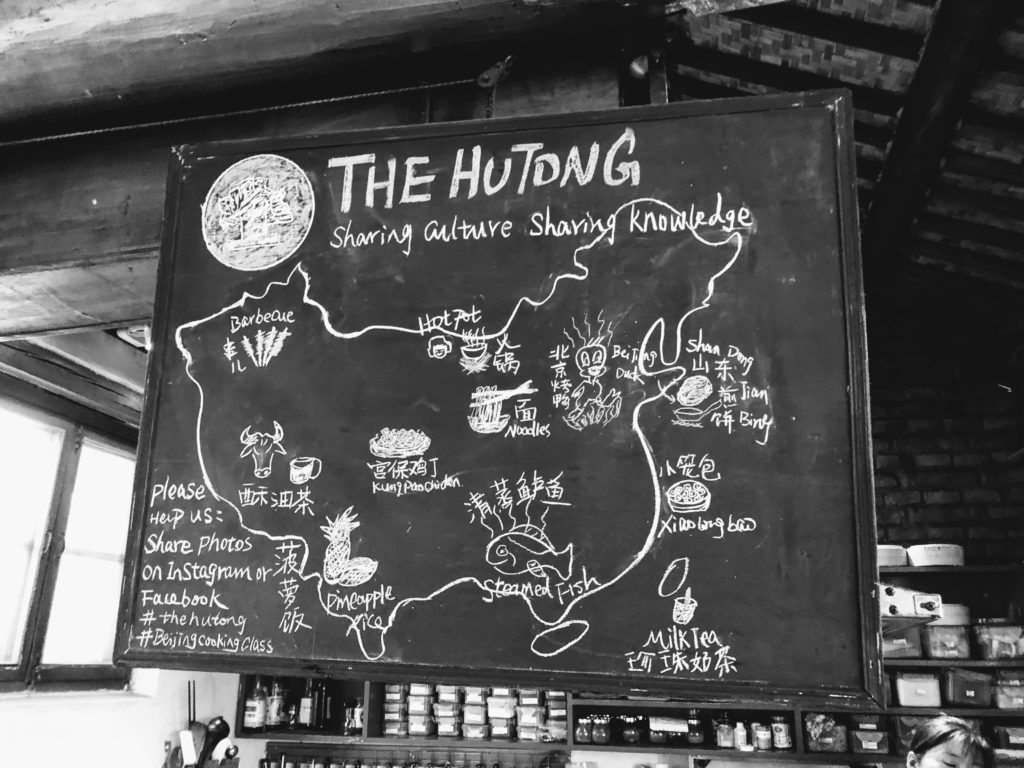 THE HUTONG
Sharing Culture Sharing Knowledge
Barbecue
串儿
Hot Pot
火锅
北京烤鸭
BeiJing
Duck
Shan Dong
山东
煎 Jian
饼 Bing
面
Noodles
宫保鸡丁
Kung Pao Chicken
酥油茶
清蒸鲈鱼
Steamed Fish
小笼包
Xiao long bao
菠萝饭
Pineapple
Rice
Milk Tea
珍珠奶茶
Please
Help us:
Share Photos
on Instagram or
Facebook
#thehutong
#BeijingcookingClass